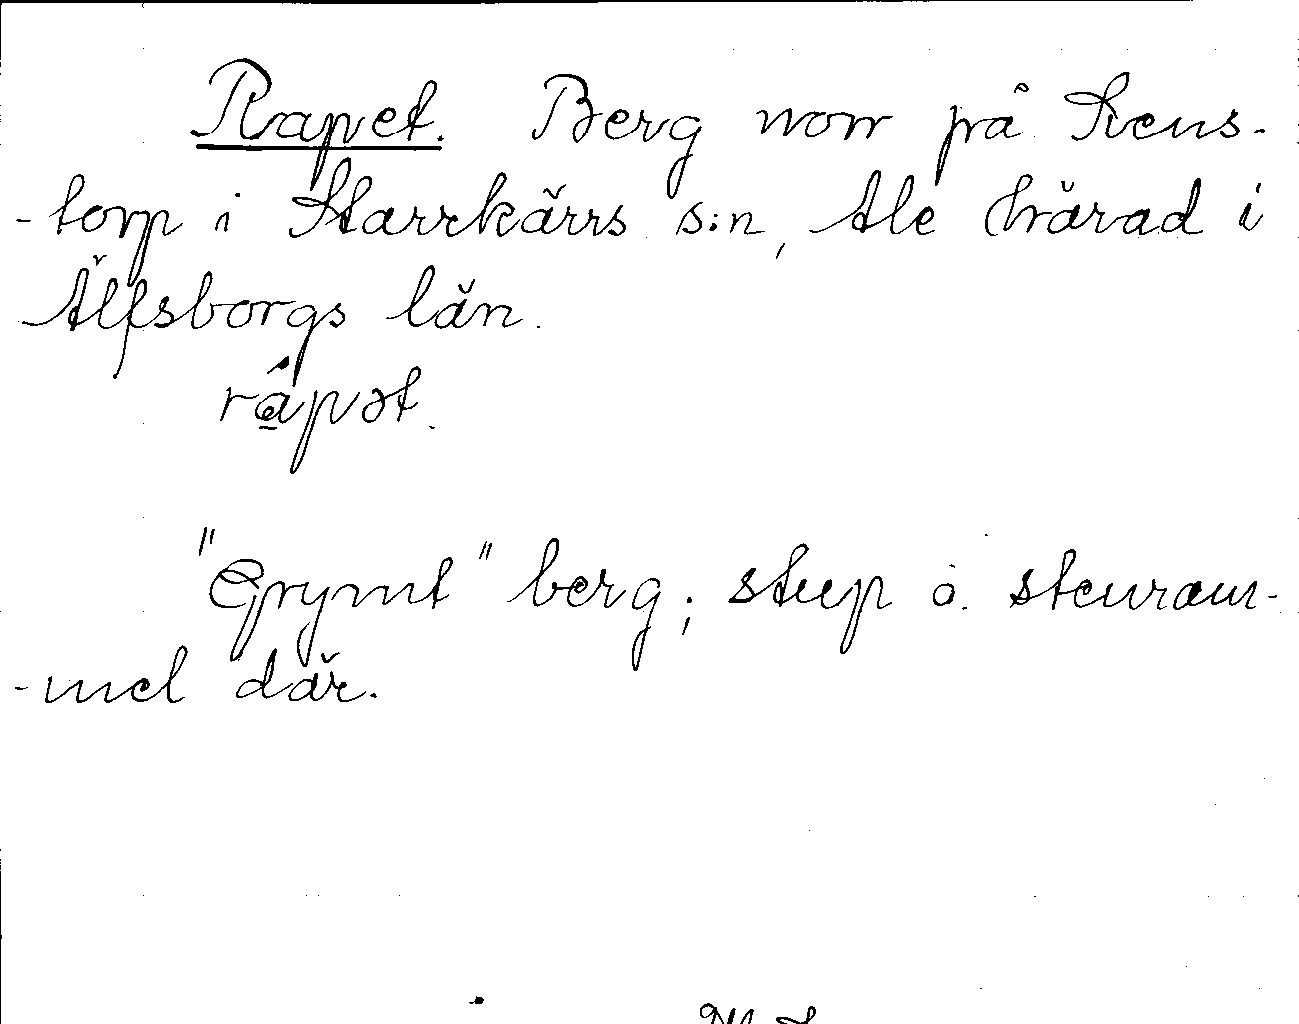 Rapet. Berg norr på Krens-
-torp i Starrkärrs s:n, Ale härad i
Älfsborgs län.
rápət.
"Grymt" berg; stup o. stenram-
-mel där.